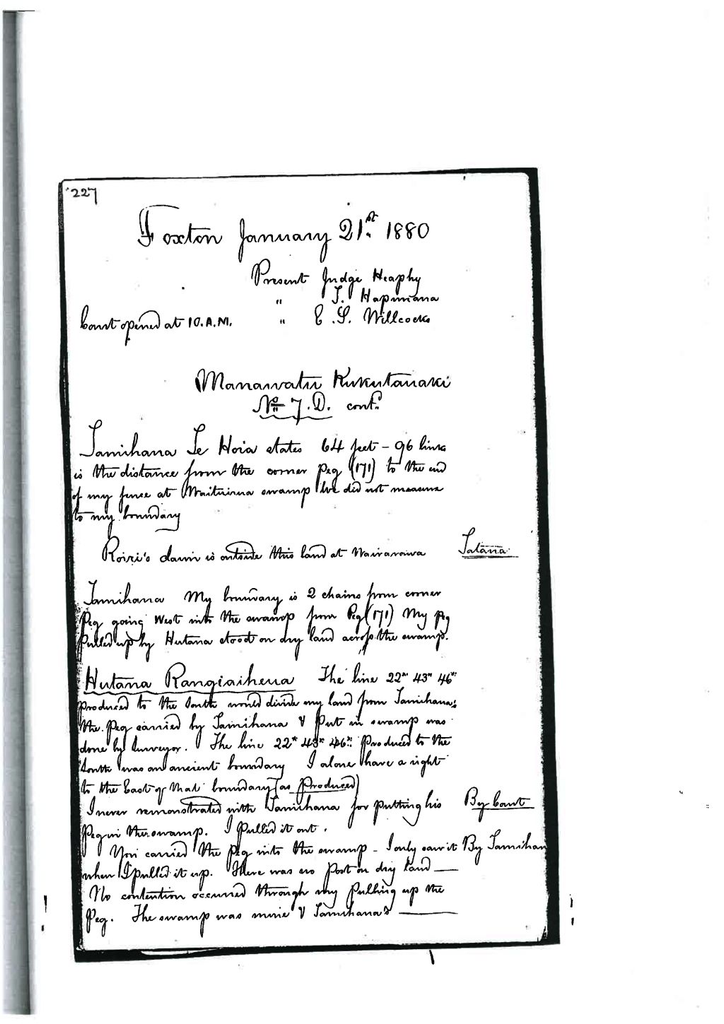 227
Foxton January 21st. 1880
Present Judge Heaphy
" T. Hapimana
Court opened at 10.A.M. " E. S. Willcocks
Manawatu Kukutauaki
No 7.D. cont.
Tamihana Te Hoia states 64 feet - 96 links
is the distance from the corner Peg (171) to the end
of my fence at Waituruna swamp We did not measure
to my boundary
Roiri's claim is outside this land at Wairarawa Tatana
Tamihana My boundary is 2 chains from corner
Peg going West into the swamp from Peg (171) My peg
pulled up by Hutana stood on dry land across the swamp.
Hutana Rangiaiheua The line 22" 43" 46"
produced to the South would divide my land from Tamihana's
the Peg carried by Tamihana & put in swamp was
done by Surveyor. The line 22" 43" 46" Produced to the
South was an ancient boundary I alone have a right
to the East of that boundary (as Produced)
I never remonstrated with Tamihana for putting his By Court
Peg in the swamp. I pulled it out.
You carried the Peg into the swamp - I only saw it By Tamihan
when I pulled it up. There was no Post on dry land
No contention occurred through my pulling up the
Peg. The swamp was mine & Tamihana's